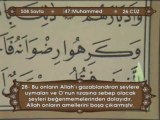 508.Sayfa 47/Muhammed 26.CÜZ
وَكَرِهُوا رِضْوَانَهُ
28- Bu onların Allah'ı gazablandıran şeylere
uymaları ve O'nun rızasına sebep olacak
şeyleri beğenmemelerinden dolayıdır.
Allah onların amellerini boşa çıkarmıştır.